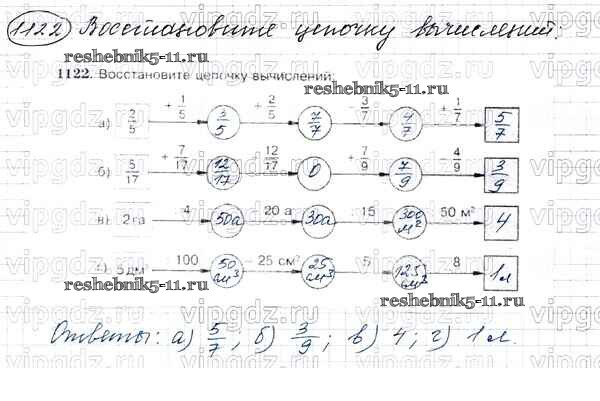 1122 Восстановите цепочку вычислений:
reshebnik5-11.ru
1122. Восстановите цепочку вычислений:
reshebnik5-11.ru
а) 2/5 + 1/5 3/5 + 2/5 7/7 3/7 4/7 + 1/7 5/7
б) 5/17 + 7/17 12/17 12/17 0 + 7/9 7/9 4/9 3/9
в) 2 га 4 50а 20 а 30а 15 300 м² 50 м² 4
5 дм 100 50 см³ 25 см² 25 см 5 125 см³ 8 1л
reshebnik5-11.ru
reshebnik5-11.ru
Ответы: а) 5/7; б) 3/9; в) 4; г) 1 л.
vipgdz.ru